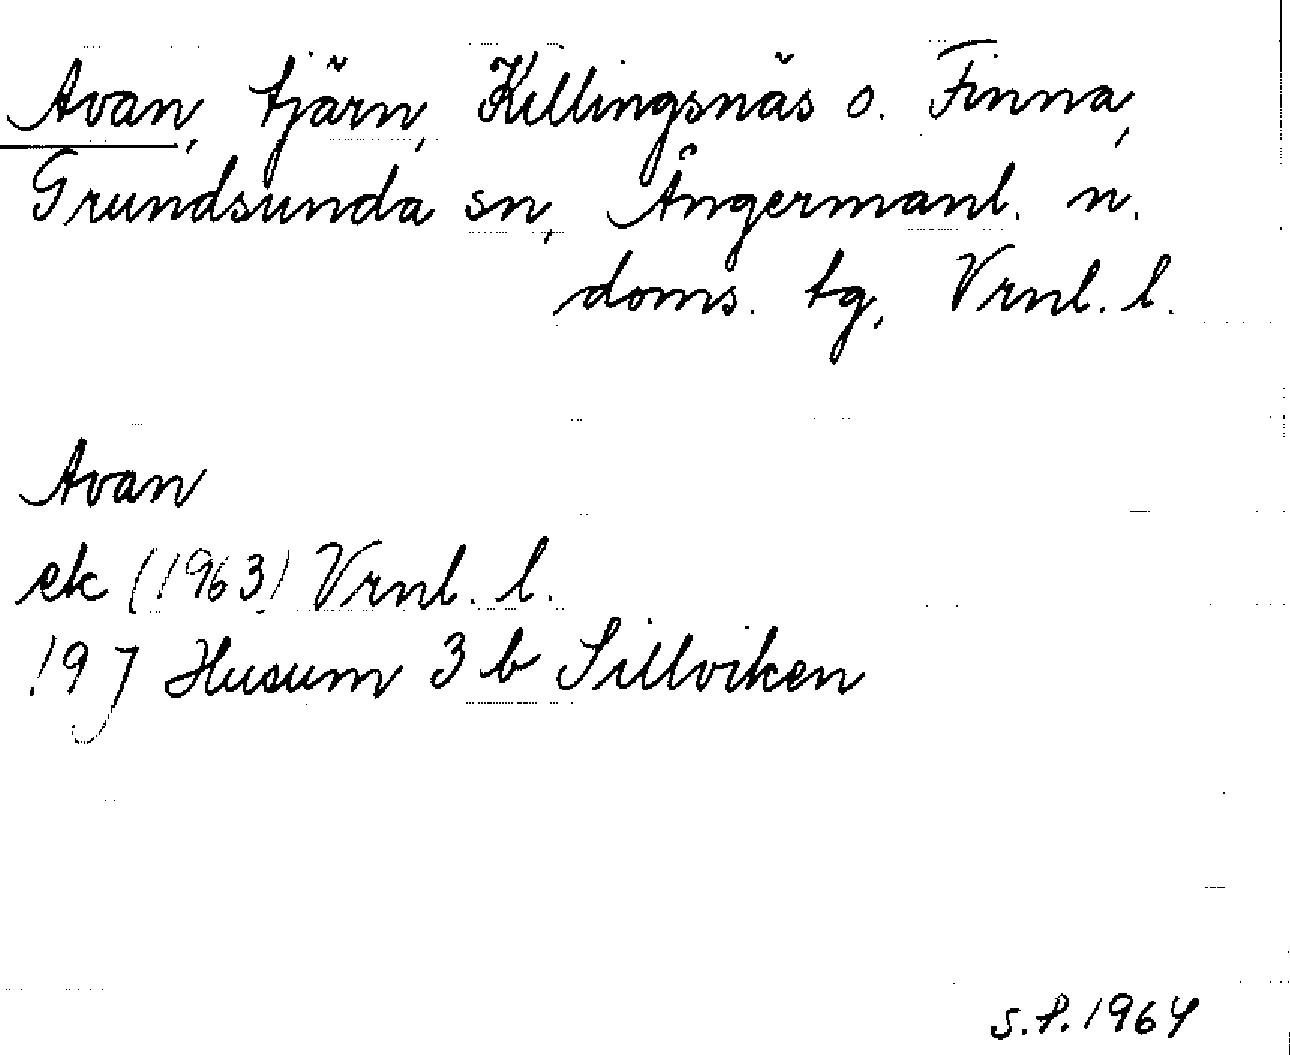 Avan, tjärn, Killingsnäs o. Finna,
Grundsunda sn, Ångermanl. n.
doms. tg, Vrnl. l.
Avan
ek (1963) Vrnl. l.
19 J Husum 3 b Sillviken
s.f. 1964